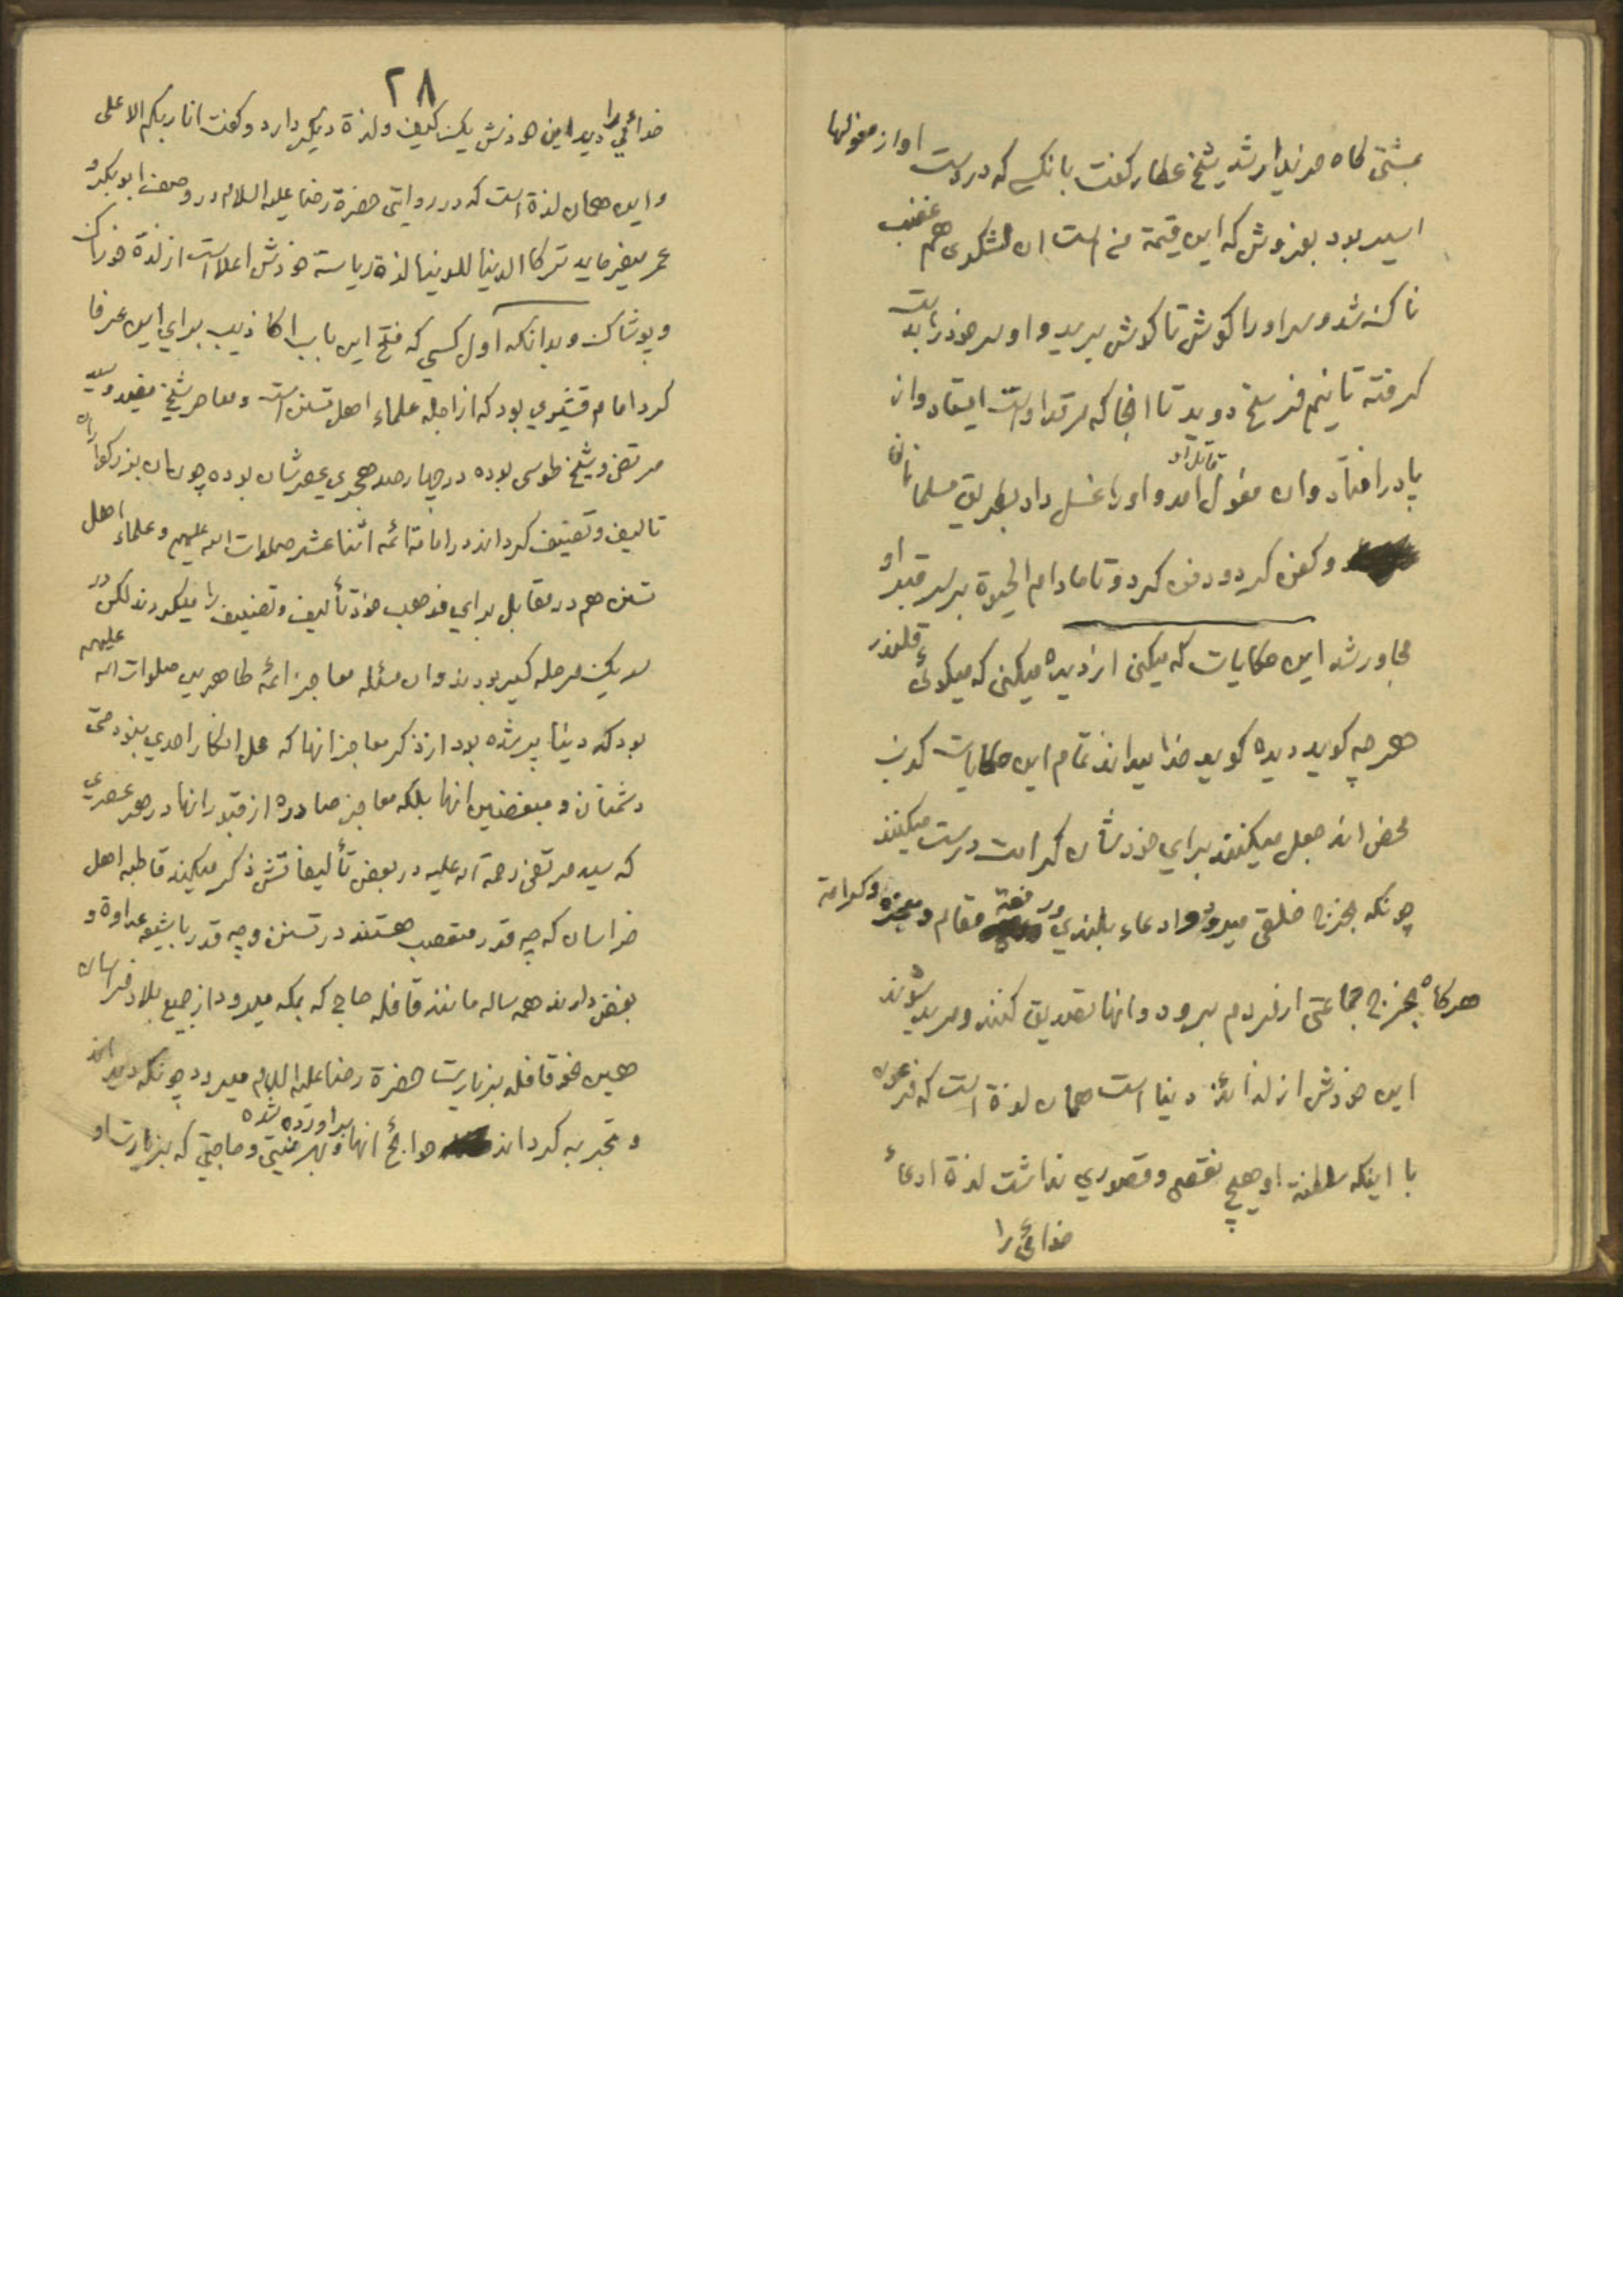 بمشتی کاه خریدار شد شیخ عطار کفت بانکسی که در دست او از مغولها
اسیر بود بفروش که این قیمة من است ان لشکری هم غضب
ناک شد و سر او را کوش تا کوش برید و او سر خود را بدست
کرفته تا نیم فرسخ دوید تا انجا که مرقد اوست ایستاد و از
پا در افتاد و ان مغول قاتل او امد و او را غسل داد بطریق مسلمانان
و کفن کرد و دفن کرد و تا مادام الحیوة بر سر قبر او
مجاور شد این حکایات که میکنی از دیده میکنی که میکوئی قلندر
هر چه کوید دیده کوید خدا میداند تمام این حکایات کذب
محض اند جعل میکنند برای خودشان کرامت درست میکنند
چونکه بخرج خلقی میرود و ادعاء بلندی و رفعة مقام و معجزه و کرامة
هرکاه بخرج جماعتی از مردم برود و انها تصدیق کنند و مرید شوند
این خودش از لذائذ دنیا است همان لذة است که فرعون
با اینکه سلطنة او هیچ نقص و قصوری نداشت لذة ادعاء
خدائی را
۲۸
خدائی را دید این خودش یک کیف و لذة دیکر دارد و کفت انا ربکم الاعلی
و این همان لذة است که در روایتی حضرة رضا علیه السلام در وصف ابوبکر و
عمر میفرماید ترکا الدنیا للدنیا لذة ریاسة خودش اعلا است از لذة خوراک
و پوشاک و بدانکه اول کسی که فتح این باب اکاذیب برای این عرفا
کرد امام قشیری بود که از اجله علماء اهل تسنن است و معاصر شیخ مفید و سید
مرتضی و شیخ طوسی بوده در چهار صد هجری عصرشان بوده چون ان بزرکواران
تالیف و تصنیف کرداند در امامة ائمه اثنا عشر صلوات الله علیهم و علماء اهل
تسنن هم در مقابل برای مذهب خود تألیف و تصنیف را میکردند لکن در
سر یک مرحله کیر بودند و ان مسئله معاجز ائمه طاهرین صلوات الله علیهم
بود که دنیا پر شده بود از ذکر معاجز انها که محل انکار احدی نبود حتی
دشمنان و مبغضین انها بلکه معاجز صادره از قبور انها در هر عصری
که سید مرتضی رحمة الله علیه در بعض تألیفاتش ذکر میکند قاطبه اهل
خراسان که چه قدر متعصب هستند در تسنن و چه قدر با شیعه عداوة و
بغض دارند همه ساله مانند قافله حاج که بمکه میرود از جمیع بلاد خراسان
همین نحو قافله بزیارت حضرة رضا علیه السلام میرود چونکه دیده اند
و تجربه کرداند حوائج انها براورده شده و بهر نیتی و حاجتی که بزیارت او